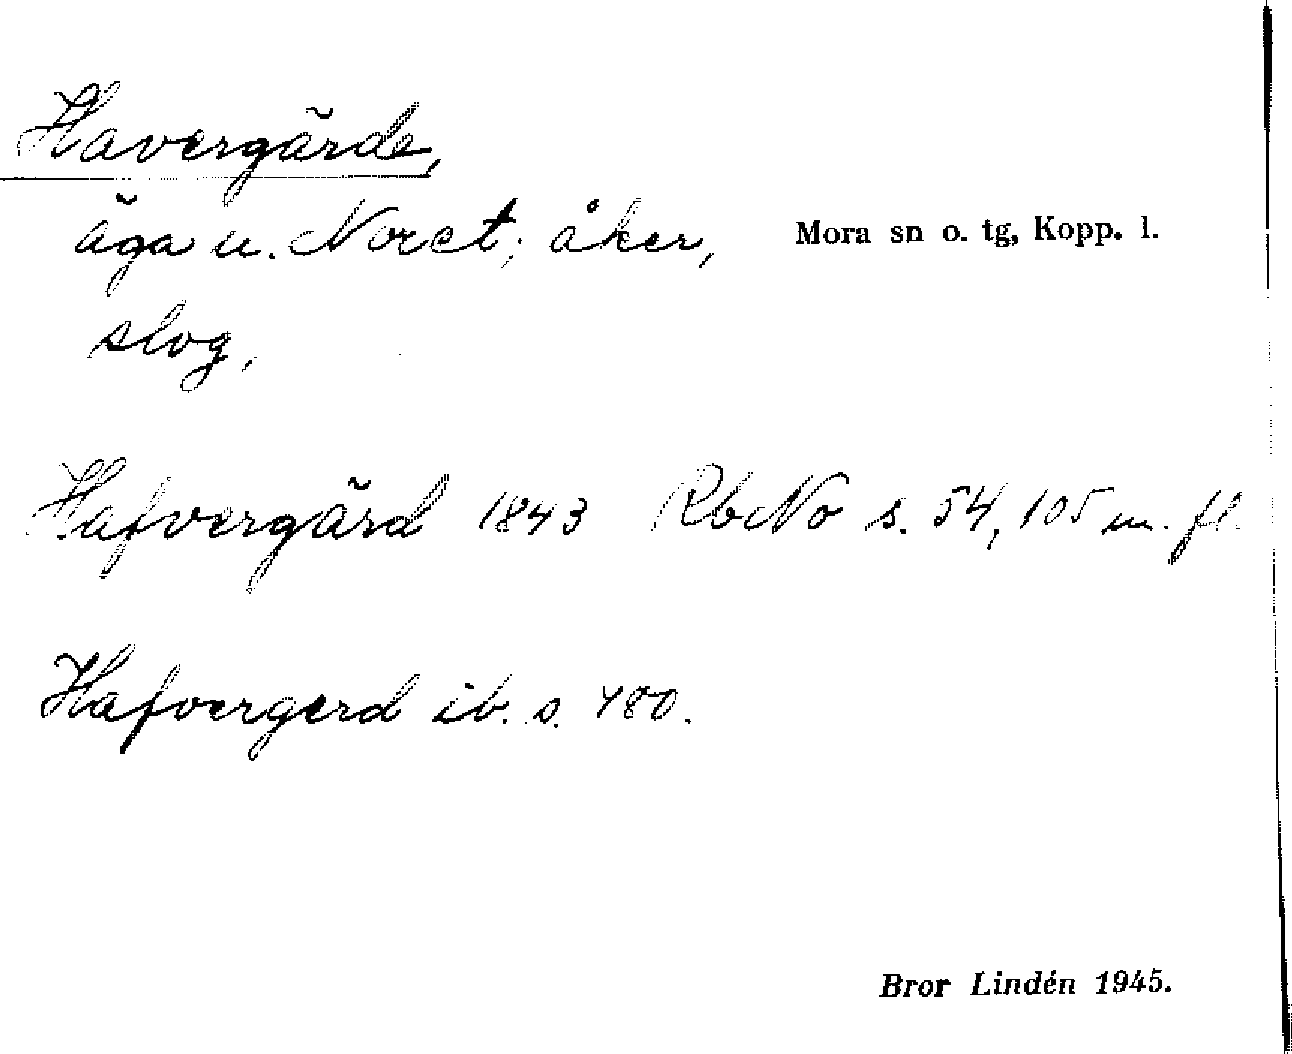 Havergärde,
äga u. Noret; åker, Mora sn o. tg, Kopp. l.
slog,
Hafvergärd 1843 RbNo s. 54, 105 m. fl.
Hafvergerd ib. s. 480.
Bror Lindén 1945.